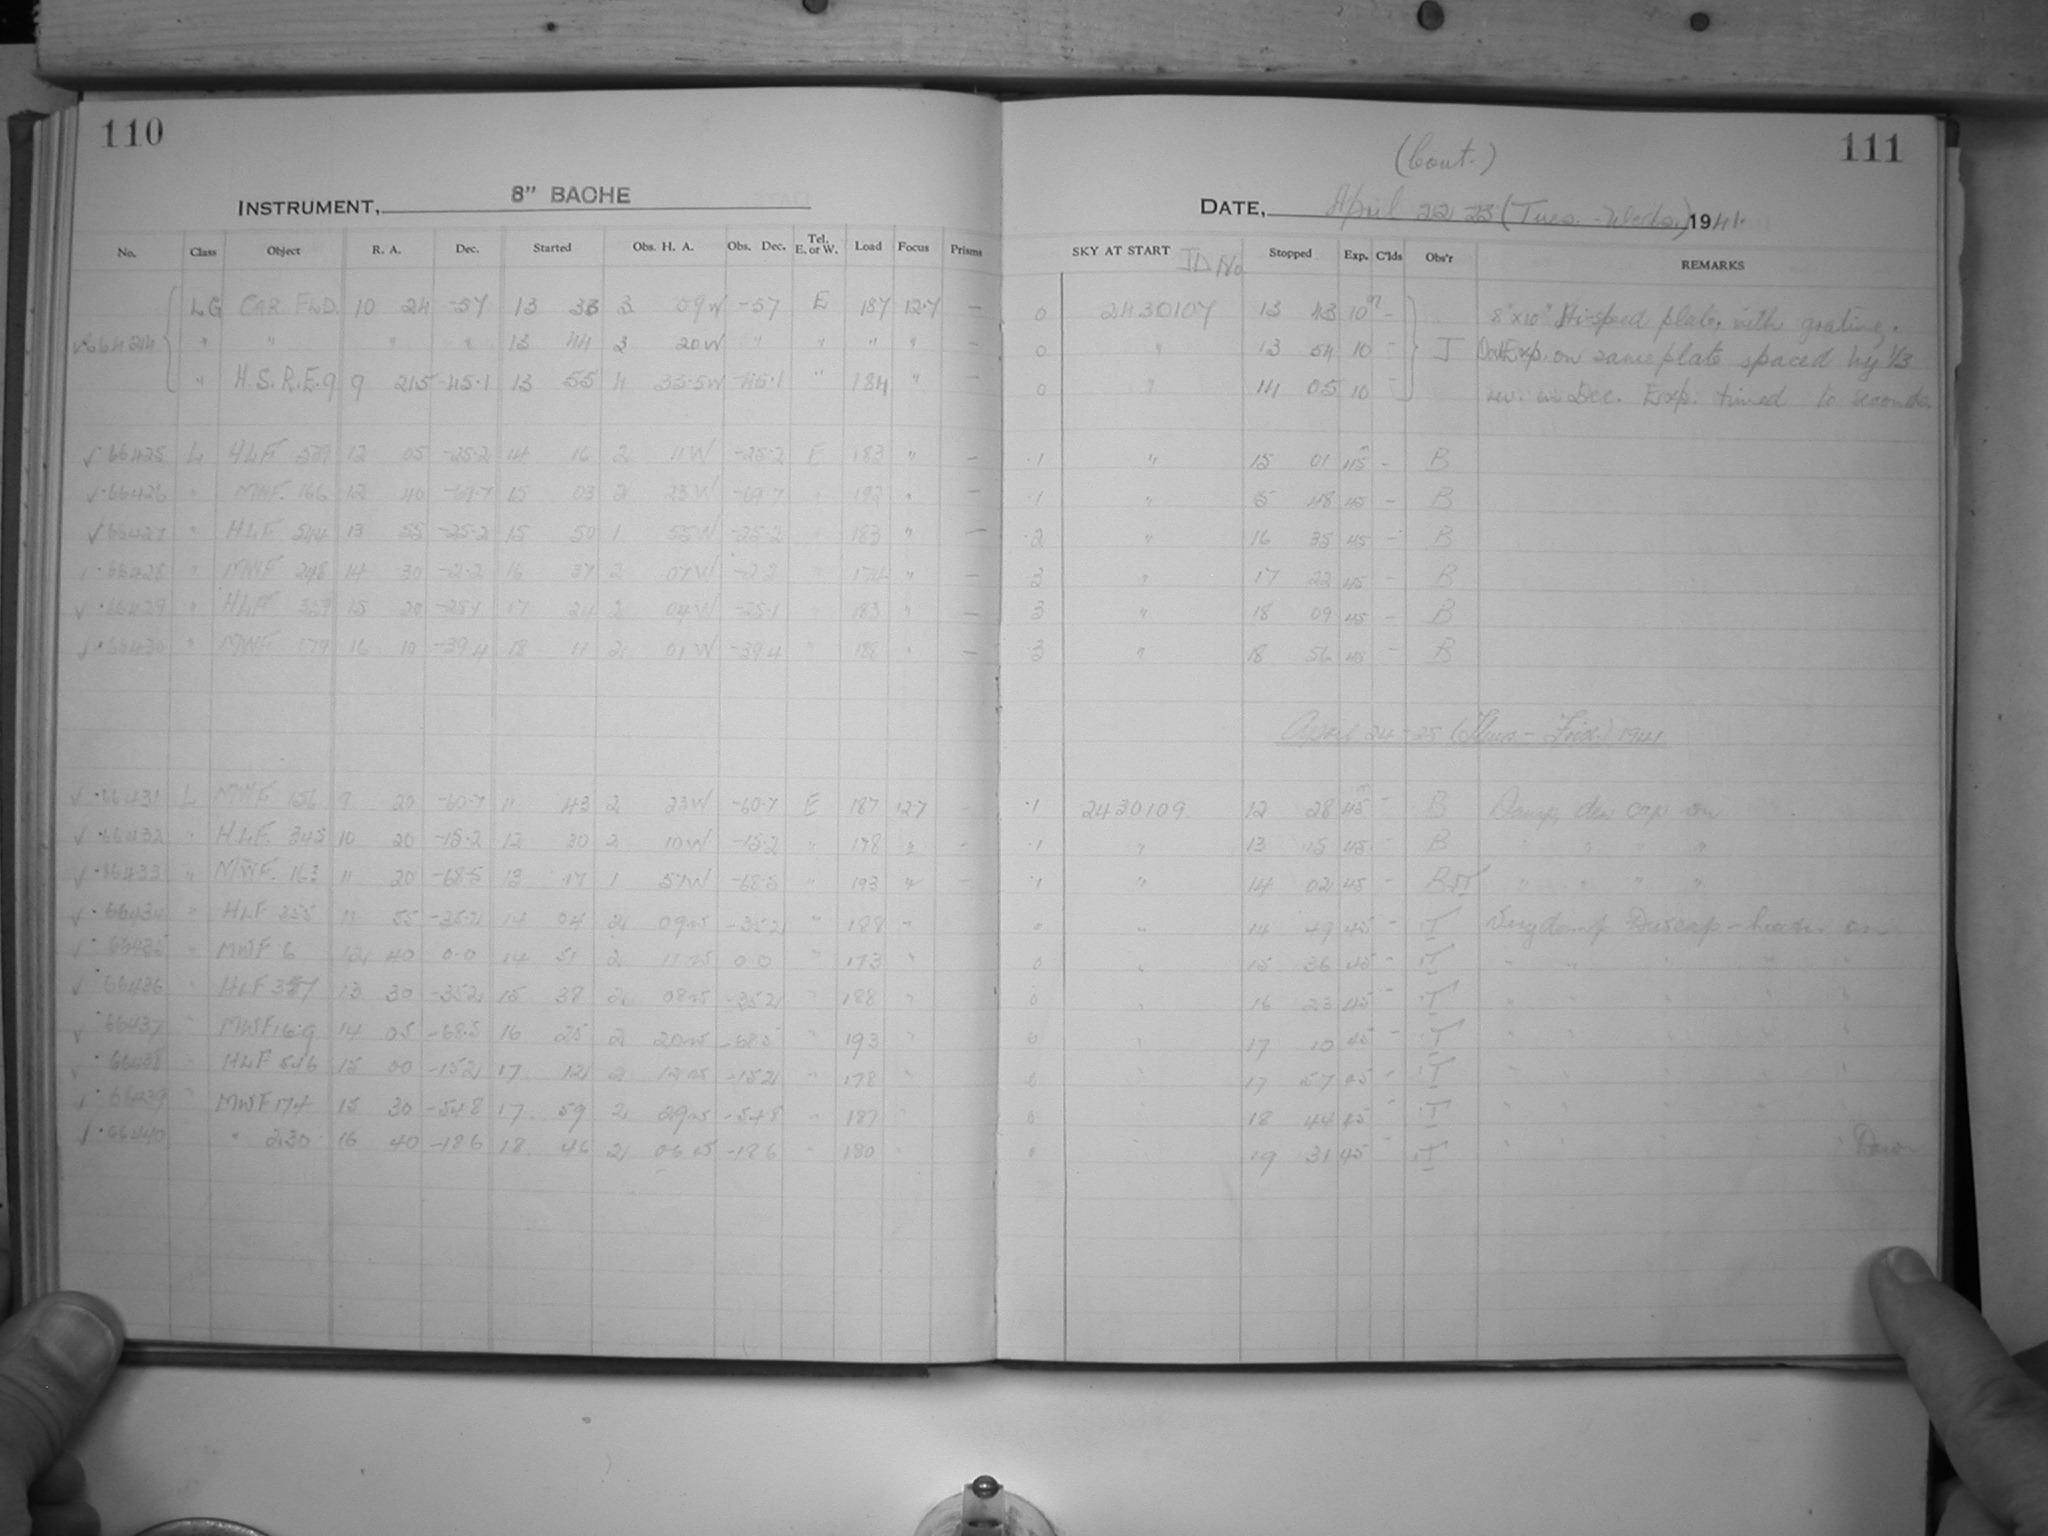 110
INSTRUMENT, 8" BACHE
No. Class Object R. A. Dec. Started Obs. H. A. Obs. Dec. Tel. E. or W. Load Focus Prisms
LG CAR FLD. 10 24 -57 13 33 3 09W -57 E 187 12.7 —
66424 " " " " 13 44 3 20W " " " " —
" H.S.R.E.9 9 21.5 -45.1 13 55 4 33.5W -45.1 " 184 " —
√ 66425 L HLF 12 05 -25.2 14 16 2 11W -25.2 E 183 " —
√ 66426 " MWF. 166 12 40 -69.7 15 03 2 23W -69.7 " " —
√ 66427 " HLF 13 55 -25.2 15 50 1 55W -25.2 " 183 " —
66428 " MWF 248 14 30 -2.2 16 37 2 07W -2.2 " 174 " —
√ 66429 " HLF 359 15 20 -25.1 17 24 2 04W -25.1 " 183 " —
√ 66430 " MWF 179 16 10 -39.4 18 11 2 01W -39.4 " 188 " —
√ 66431 L MWF 156 9 20 -60.7 11 43 2 23W -60.7 E 187 12.7 -
√ 66432 " HLF. 345 10 20 -15.2 12 30 2 10W -15.2 " 178 " -
√ 66433 " MWF. 163 11 20 -68.5 13 17 1 57W -68.5 " 193 " -
√ 66434 " HLF 355 11 55 -35.2 14 04 2 09W -35.2 " 188 "
66435 " MWF 6 12 40 0.0 14 51 2 11W 0.0 " 173 "
√ 66436 " HLF 357 13 30 -35.2 15 38 2 08W -35.2 " 188 "
√ 66437 " MWF 169 14 05 -68.5 16 25 2 20W -68.5 " 193 "
66438 " HLF 546 15 00 -15.2 17 12 2 12W -15.2 " 178 "
66439 " MWF 174 15 30 -54.8 17 59 2 29W -54.8 " 187 "
√ 66440 " 230 16 40 -18.6 18 46 2 06W -18.6 " 180 "
111
(Cont.)
DATE, April 22 23 (Tues. - Weds.) 1941.
SKY AT START JD No Stopped Exp. C'lds Obs'r REMARKS
0 2430107 13 43 10m - 8"x10" Hi-speed plate, with grating.
0 " 13 54 10 - J Exp. on same plate spaced by 1/3
0 " 14 05 10 - rev. in Dec. Exp. timed to seconds.
.1 " 15 01 45 - B
.1 " 15 48 45 - B
.2 " 16 35 45 - B
3 " 17 22 45 - B
3 " 18 09 45 - B
3 " 18 56 45 - B
April 24-25 (Thurs - Frid.) 1941
.1 2430109 12 28 45 - B Damp, dew cap on
.1 " 13 15 45 - B " " " "
.1 " 14 02 45 - " " " "
0 " 14 49 45 - Very damp Dewcap - heater on
0 " 15 36 45 - " " " " "
0 " 16 23 45 - " " " " "
0 " 17 10 45 - " " " " "
0 " 17 57 45 - " " " " "
0 " 18 44 45 - " " " " "
0 " 19 31 45 - " " " " " Dawn